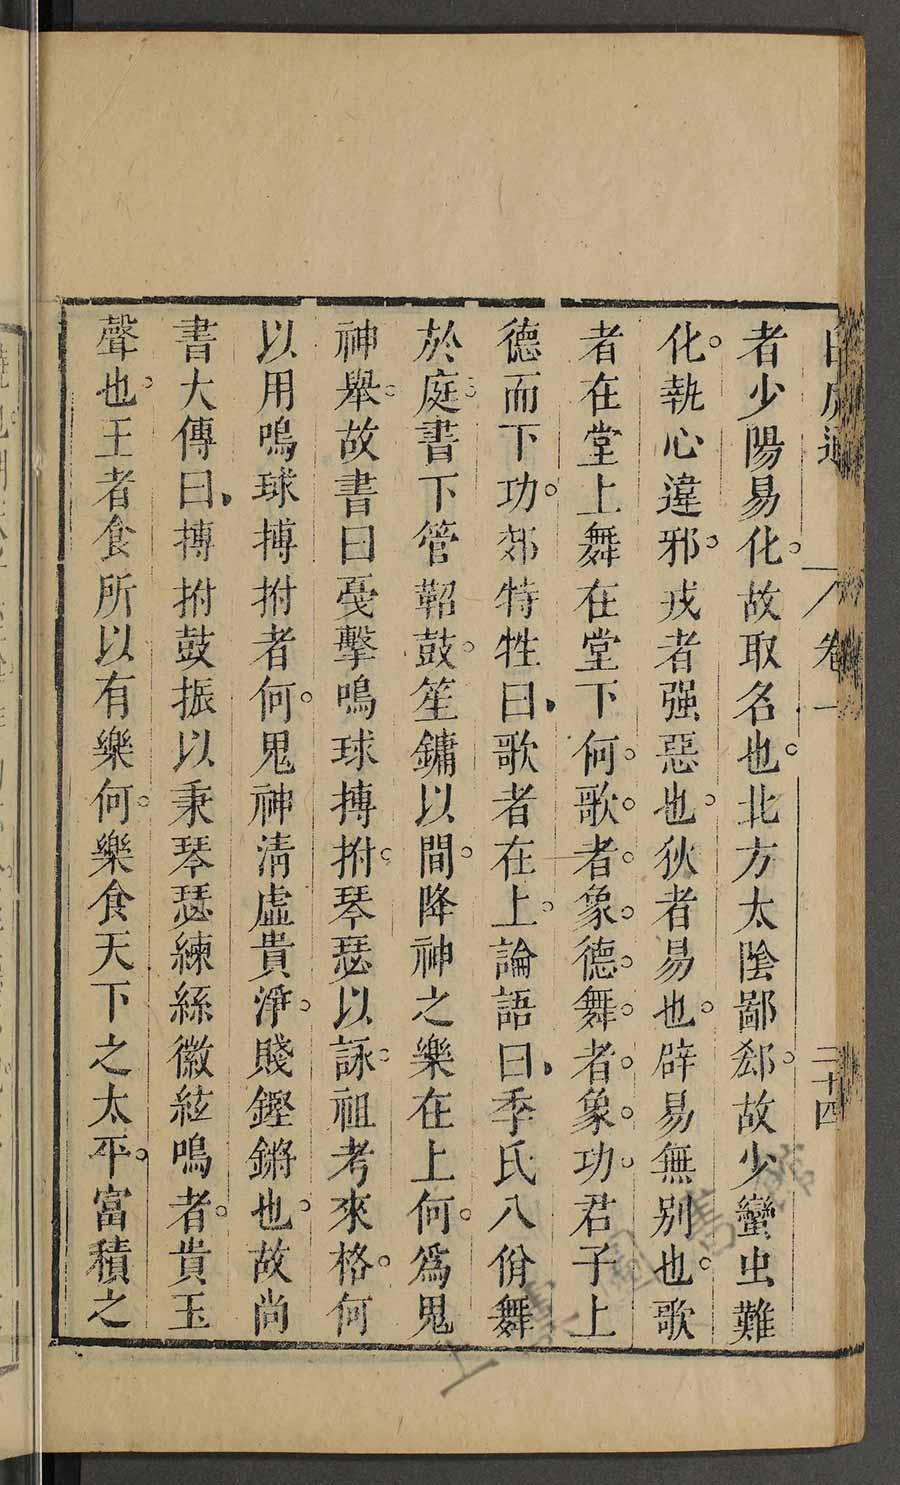 白虎通 卷一 二十四
者少陽易化。故取名也。北方太陰鄙郄。故少蠻虫難
化。執心違邪。戎者强惡也。狄者易也。辟易無别也。歌
者在堂上舞在堂下何。歌者。象德。舞者。象功。君子上
德而下功。郊特牲曰、歌者在上。論語曰、季氏八佾舞
於庭。書下管鞀鼓。笙鏞以間。降神之樂在上何。爲鬼
神舉。故書曰戞擊鳴球搏拊。琴瑟以詠。祖考來格。何
以用鳴球搏拊者何。鬼神清虛貴淨。賤鏗鏘也。故尚
書大傳曰、搏拊鼓振以秉琴瑟練絲徽紘鳴者。貴玉
聲也。王者食所以有樂何。樂食天下之太平。富積之